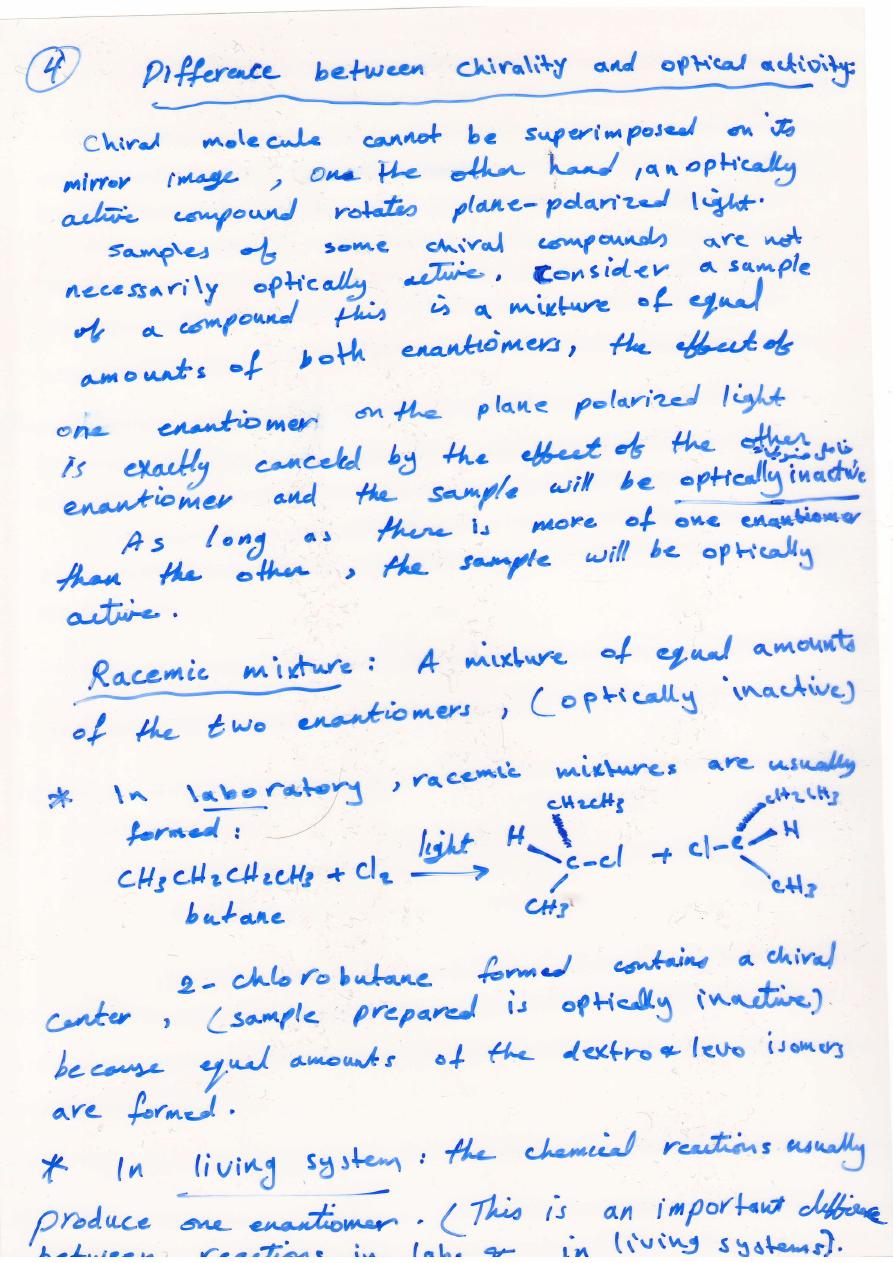 4
Difference between chirality and optical activity:
Chiral molecule cannot be superimposed on its
mirror image, One the other hand, an optically
active compound rotates plane-polarized light.
Samples of some chiral compounds are not
necessarily optically active. Consider a sample
of a compound this is a mixture of equal
amounts of both enantiomers, the effect of
one enantiomer on the plane polarized light
is exactly canceld by the effect of the other
enantiomer and the sample will be optically inactive
As long as there is more of one enantiomer
than the other, the sample will be optically
active.
Racemic mixture: A mixture of equal amounts
of the two enantiomers, (optically inactive)
* In laboratory, racemic mixtures are usually
formed:
CH3CH2CH2CH3 + Cl2 light
butane
CH2CH3
H
C-Cl
CH3
+
CH2CH3
Cl-C
H
CH3
2-chlorobutane formed contains a chiral
center, (sample prepared is optically inactive)
because equal amounts of the dextro & levo isomers
are formed.
* In living system: the chemical reactions usually
produce one enantiomer. (This is an important difference
between reactions in labs & in living systems).